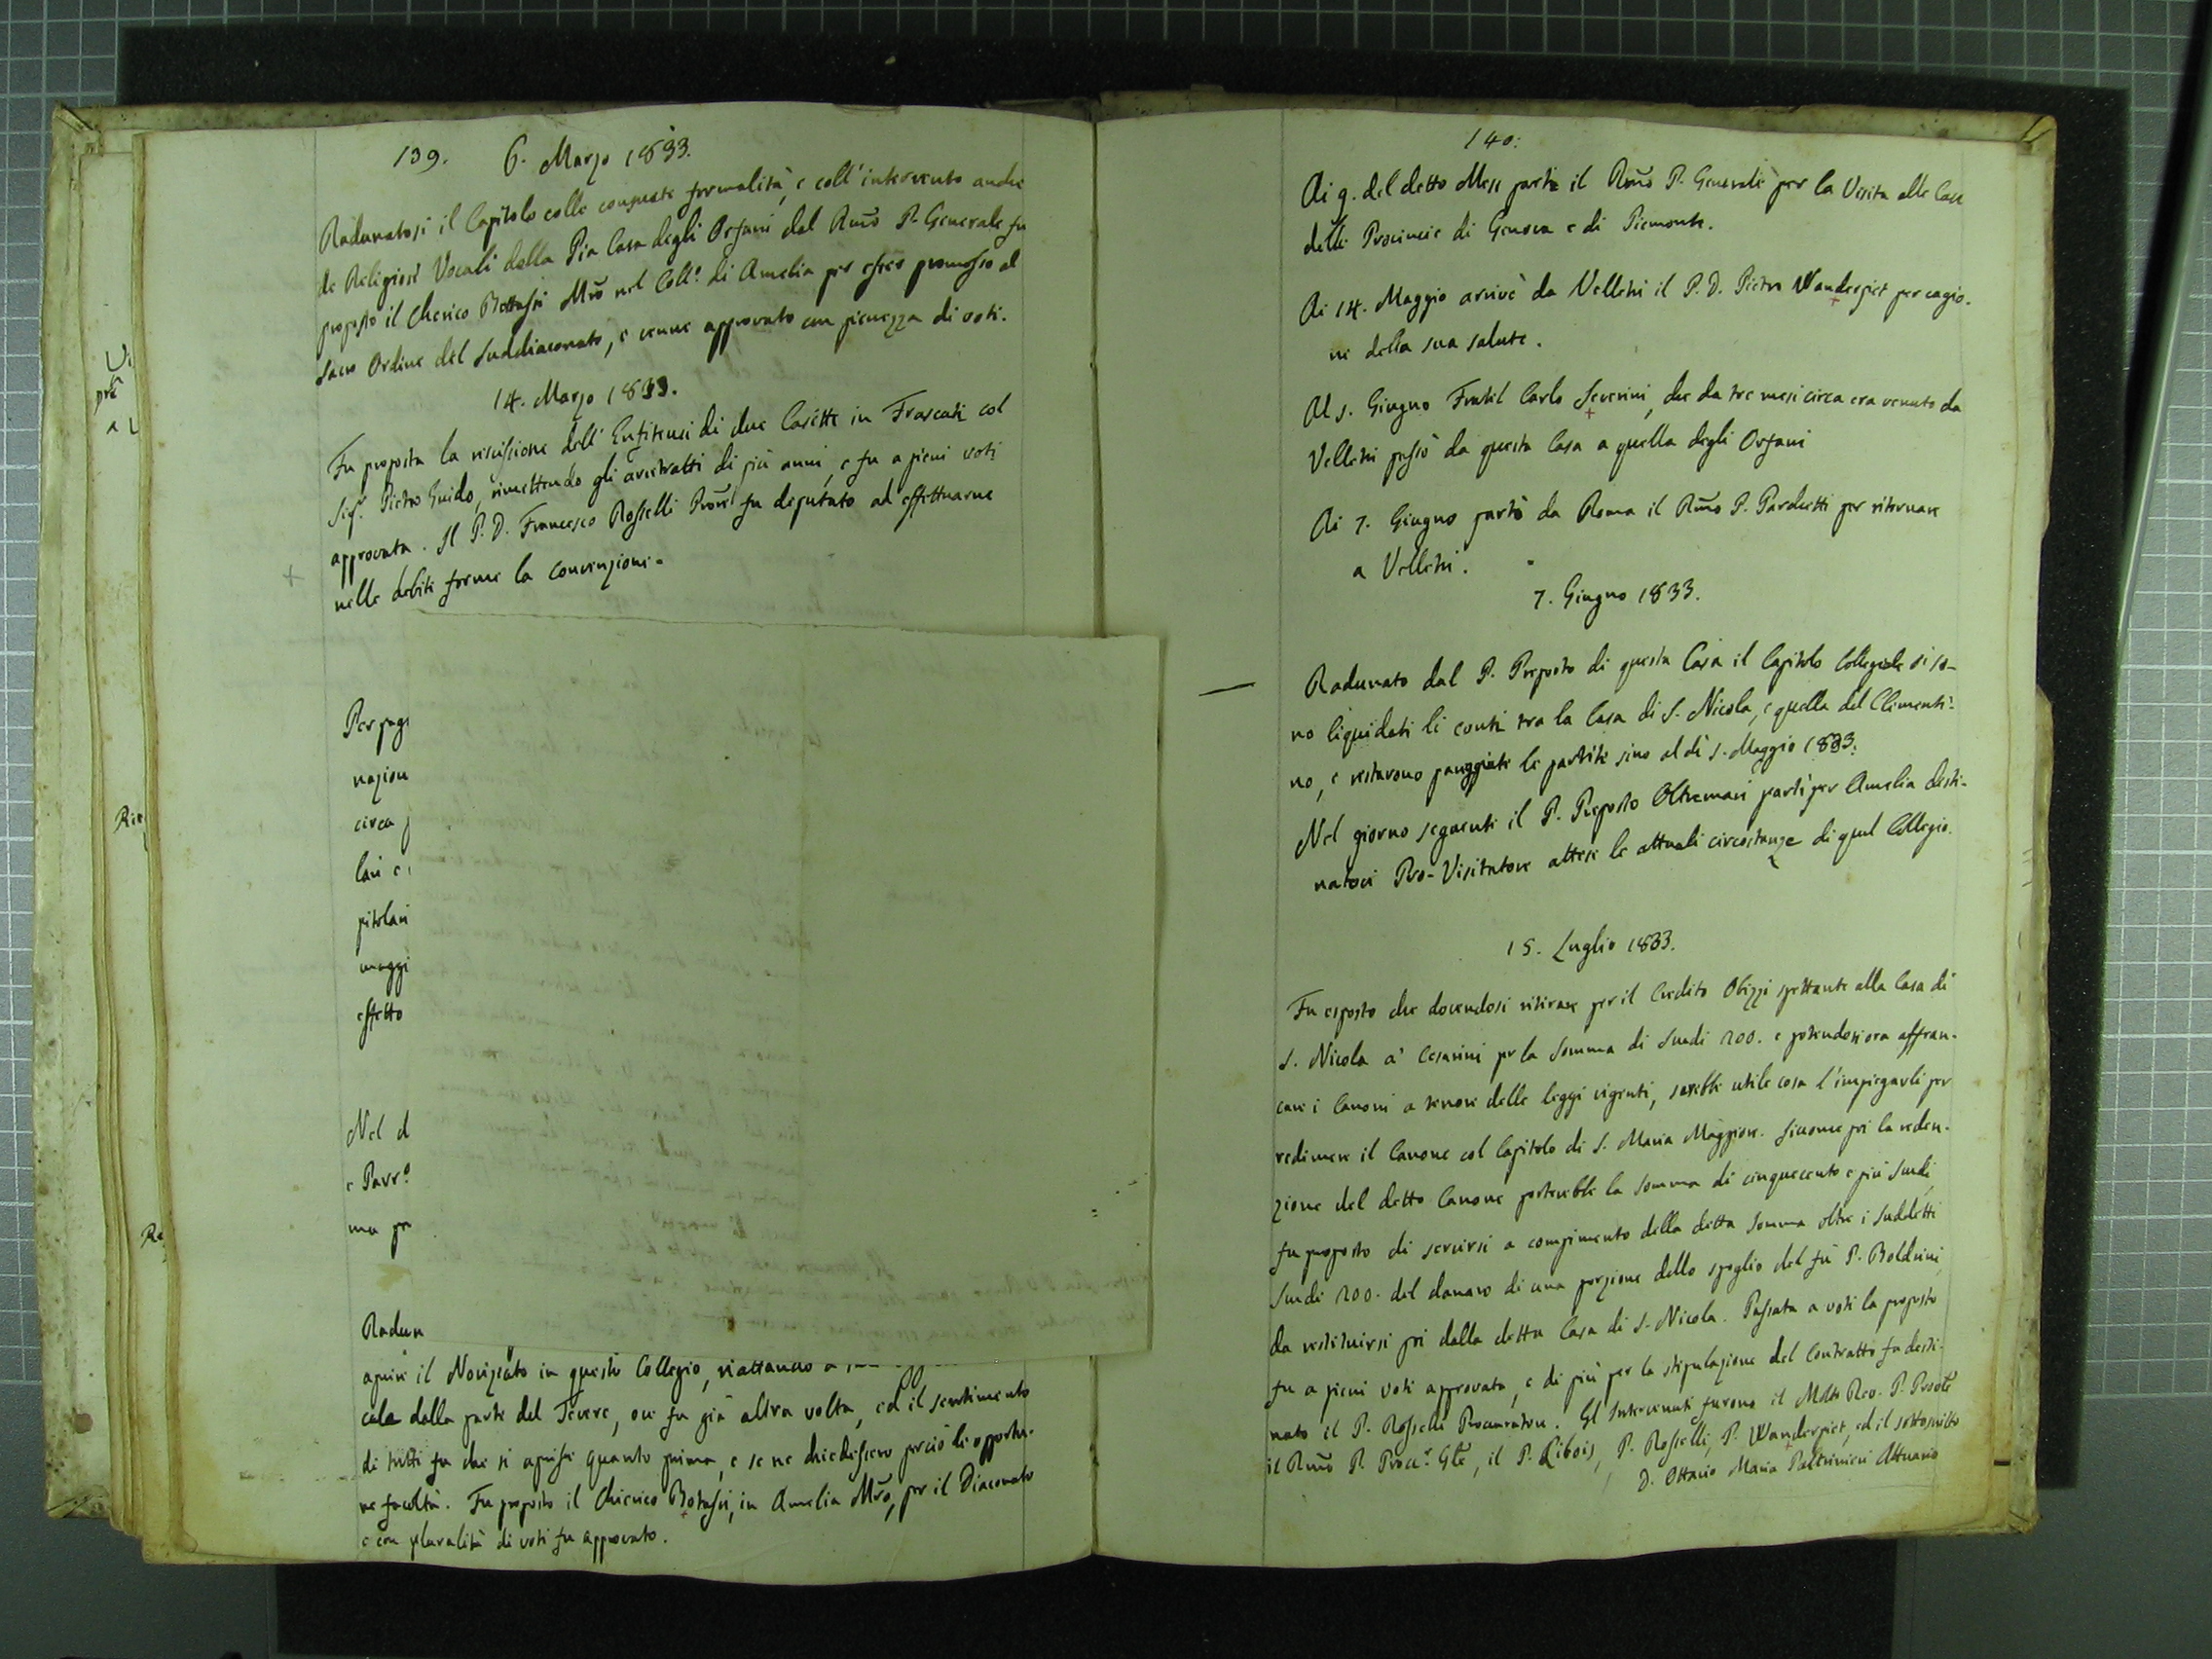 139. 6. Marzo 1833.
Radunatosi il Capitolo colle consuete formalità, e coll'intervento anche
de Religiosi Vocali della Pia Casa degli Orfani dal Rm̃o P. Generale fu
proposto il Cherico Bottassi Mrõ nel Coll.º di Amelia per esser promosso al
sacro Ordine del Suddiaconato, e venne approvato con pienezza di voti.
14. Marzo 1833.
Fu proposta la rescissione dell'Enfiteusi di due Casette in Frascati col
Sigr. Pietro Guido, rimettendo gli arretratti di più anni, e fu a pieni voti
approvata. Il P. D. Francesco Rosselli fu deputato ad effettuarne
nelle debite forme la convenzione.
Per pag
nazion
circa
lari e
pitolari
maggi
effetto
Nel d
e Parr.º
ma pr
Radun
aprire il Noviziato in questo Collegio, riattando a
cale dalla parte del Tevere, ove fu già altra volta, ed il sentimento
di tutti fu che si aprisse quanto prima, e se ne chiedissero perciò le opportu-
ne facoltà. Fu proposto il Chierico Botassi, in Amelia Mrõ, per il Diaconato
e con pluralità di voti fu approvato.
140:
Ai 9. del detto Mese partì il Rm̃o P. Generale per la Visita alle Case
delle Provincie di Genova e di Piemonte.
Ai 14. Maggio arrivò da Velletri il P. D. Pietro Wanderpiet per cagio-
ne della sua salute.
Al 1. Giugno Fratel Carlo Severini, che da tre mesi circa era venuto da
Velletri passò da questa Casa a quella degli Orfani
Ai 7. Giugno partò da Roma il Rm̃o P. Parchetti per ritornare
a Velletri.
7. Giugno 1833.
Radunato dal P. Preposto di questa Casa il Capitolo Collegiale si so-
no liquidati li conti tra la Casa di S. Nicola, e quella del Clementi-
no, e restarono pareggiate le partite sino al dì 1. Maggio 1833.
Nel giorno seguente il P. Preposto Oltremari partì per Amelia desti-
natovi Pro-Visitatore attese le attuali circostanze di quel Collegio.
15. Luglio 1833.
Fu esposto che dovendosi ritirare per il Credito Obizzi spettante alla Casa di
S. Nicola a' Cesarini per la somma di Scudi 200. e potendosi ora affran-
care i Canoni a tenore delle leggi vigenti, sarebbe utile cosa l'impiegarli per
redimere il Canone col Capitolo di S. Maria Maggiore. Siccome poi la reden-
zione del detto Canone porterebbe la somma di cinquecento e più Scudi,
fu proposto di servirsi a compimento della detta somma oltre i suddetti
Scudi 200. del danaro di una porzione dello spoglio del fù P. Bolduini
da restituirsi poi dalla detta Casa di S. Nicola. Passata a voti la proposta
fu a pieni voti approvata, e di più per la stipulazione del Contratto fu desti-
nato il P. Rosselli Procuratore. Gl'Intervenuti furono il Mlto Rev. P. Provle
il Rm̃o P. Procr. Glẽ, il P. Libois, P. Rosselli, P. Wanderpiet, ed il sottoscritto
D. Ottavio Maria Paltrinieri Attuario